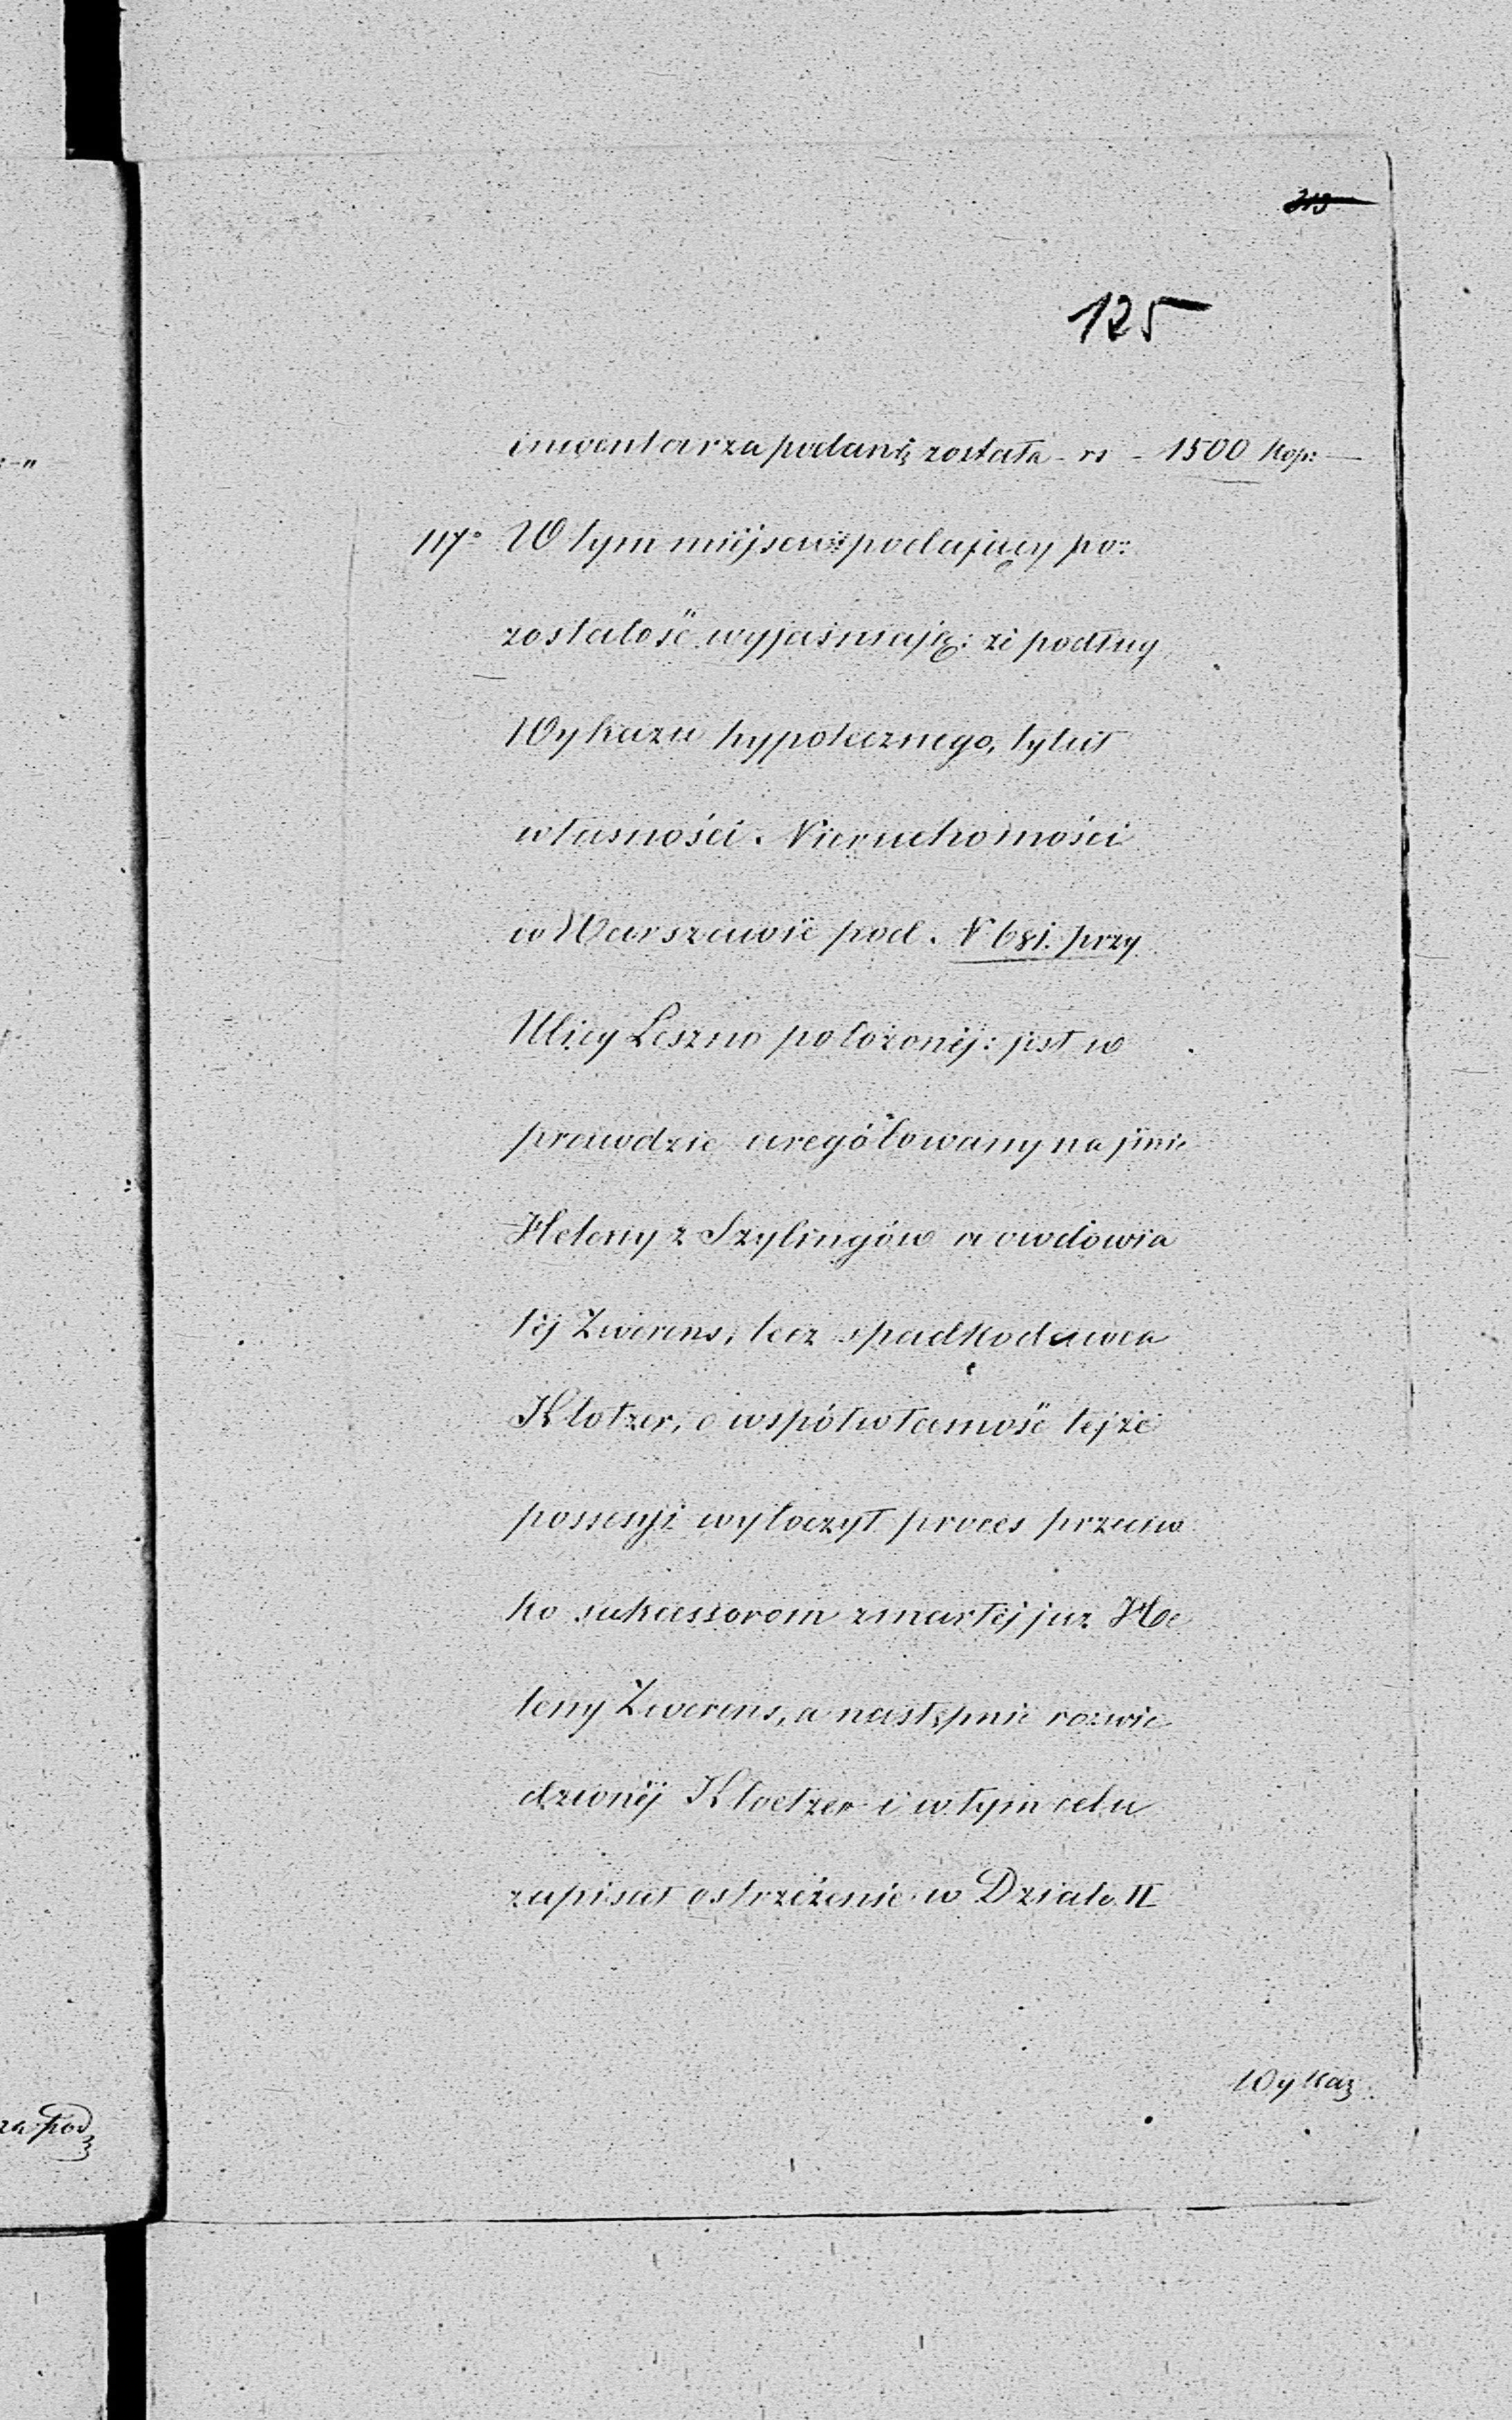 313
125
inwentarza podaną została - rs - 1500 kop: —
117° W tym miejscu podający po:
zostałość wyjaśniają: że podług
Wykazu hypotecznego, tytuł
własności Nieruchomości
w Warszawie pod N 681. przy
Ulicy Leszno położonej: jest w
prawdzie urególowany na imie
Heleny z Szylingów a owdowia
łej Zwerens, lecz spadkodawca
Klotzer, o współwłasność tejże
possessyi wytoczył proces przeciw
ko sukcessorom zmarłej już He
leny Zwerens, a następnie rozwie
dzionej Kloetzer i w tym celu
zapisał ostrzeżenie w Dziale II
Wykaz
za pod